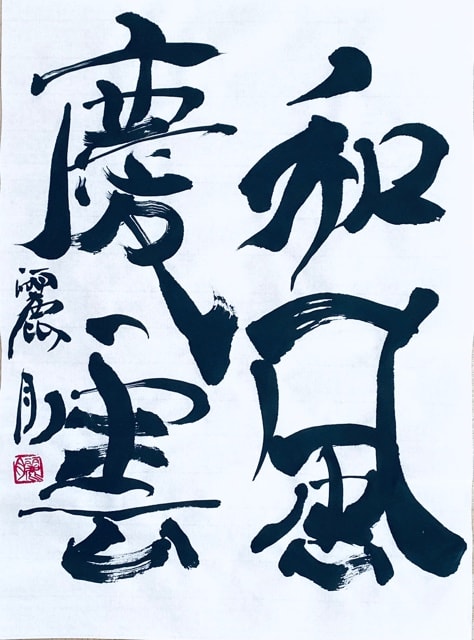 和風
慶雲
麗月